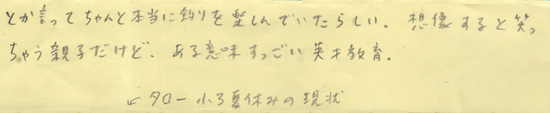 とか言ってちゃんと本当に釣りを楽しんでいたらしい。想像すると笑っ
ちゃう親子だけど、ある意味すっごい英才教育。
↙タロー小3夏休みの現状